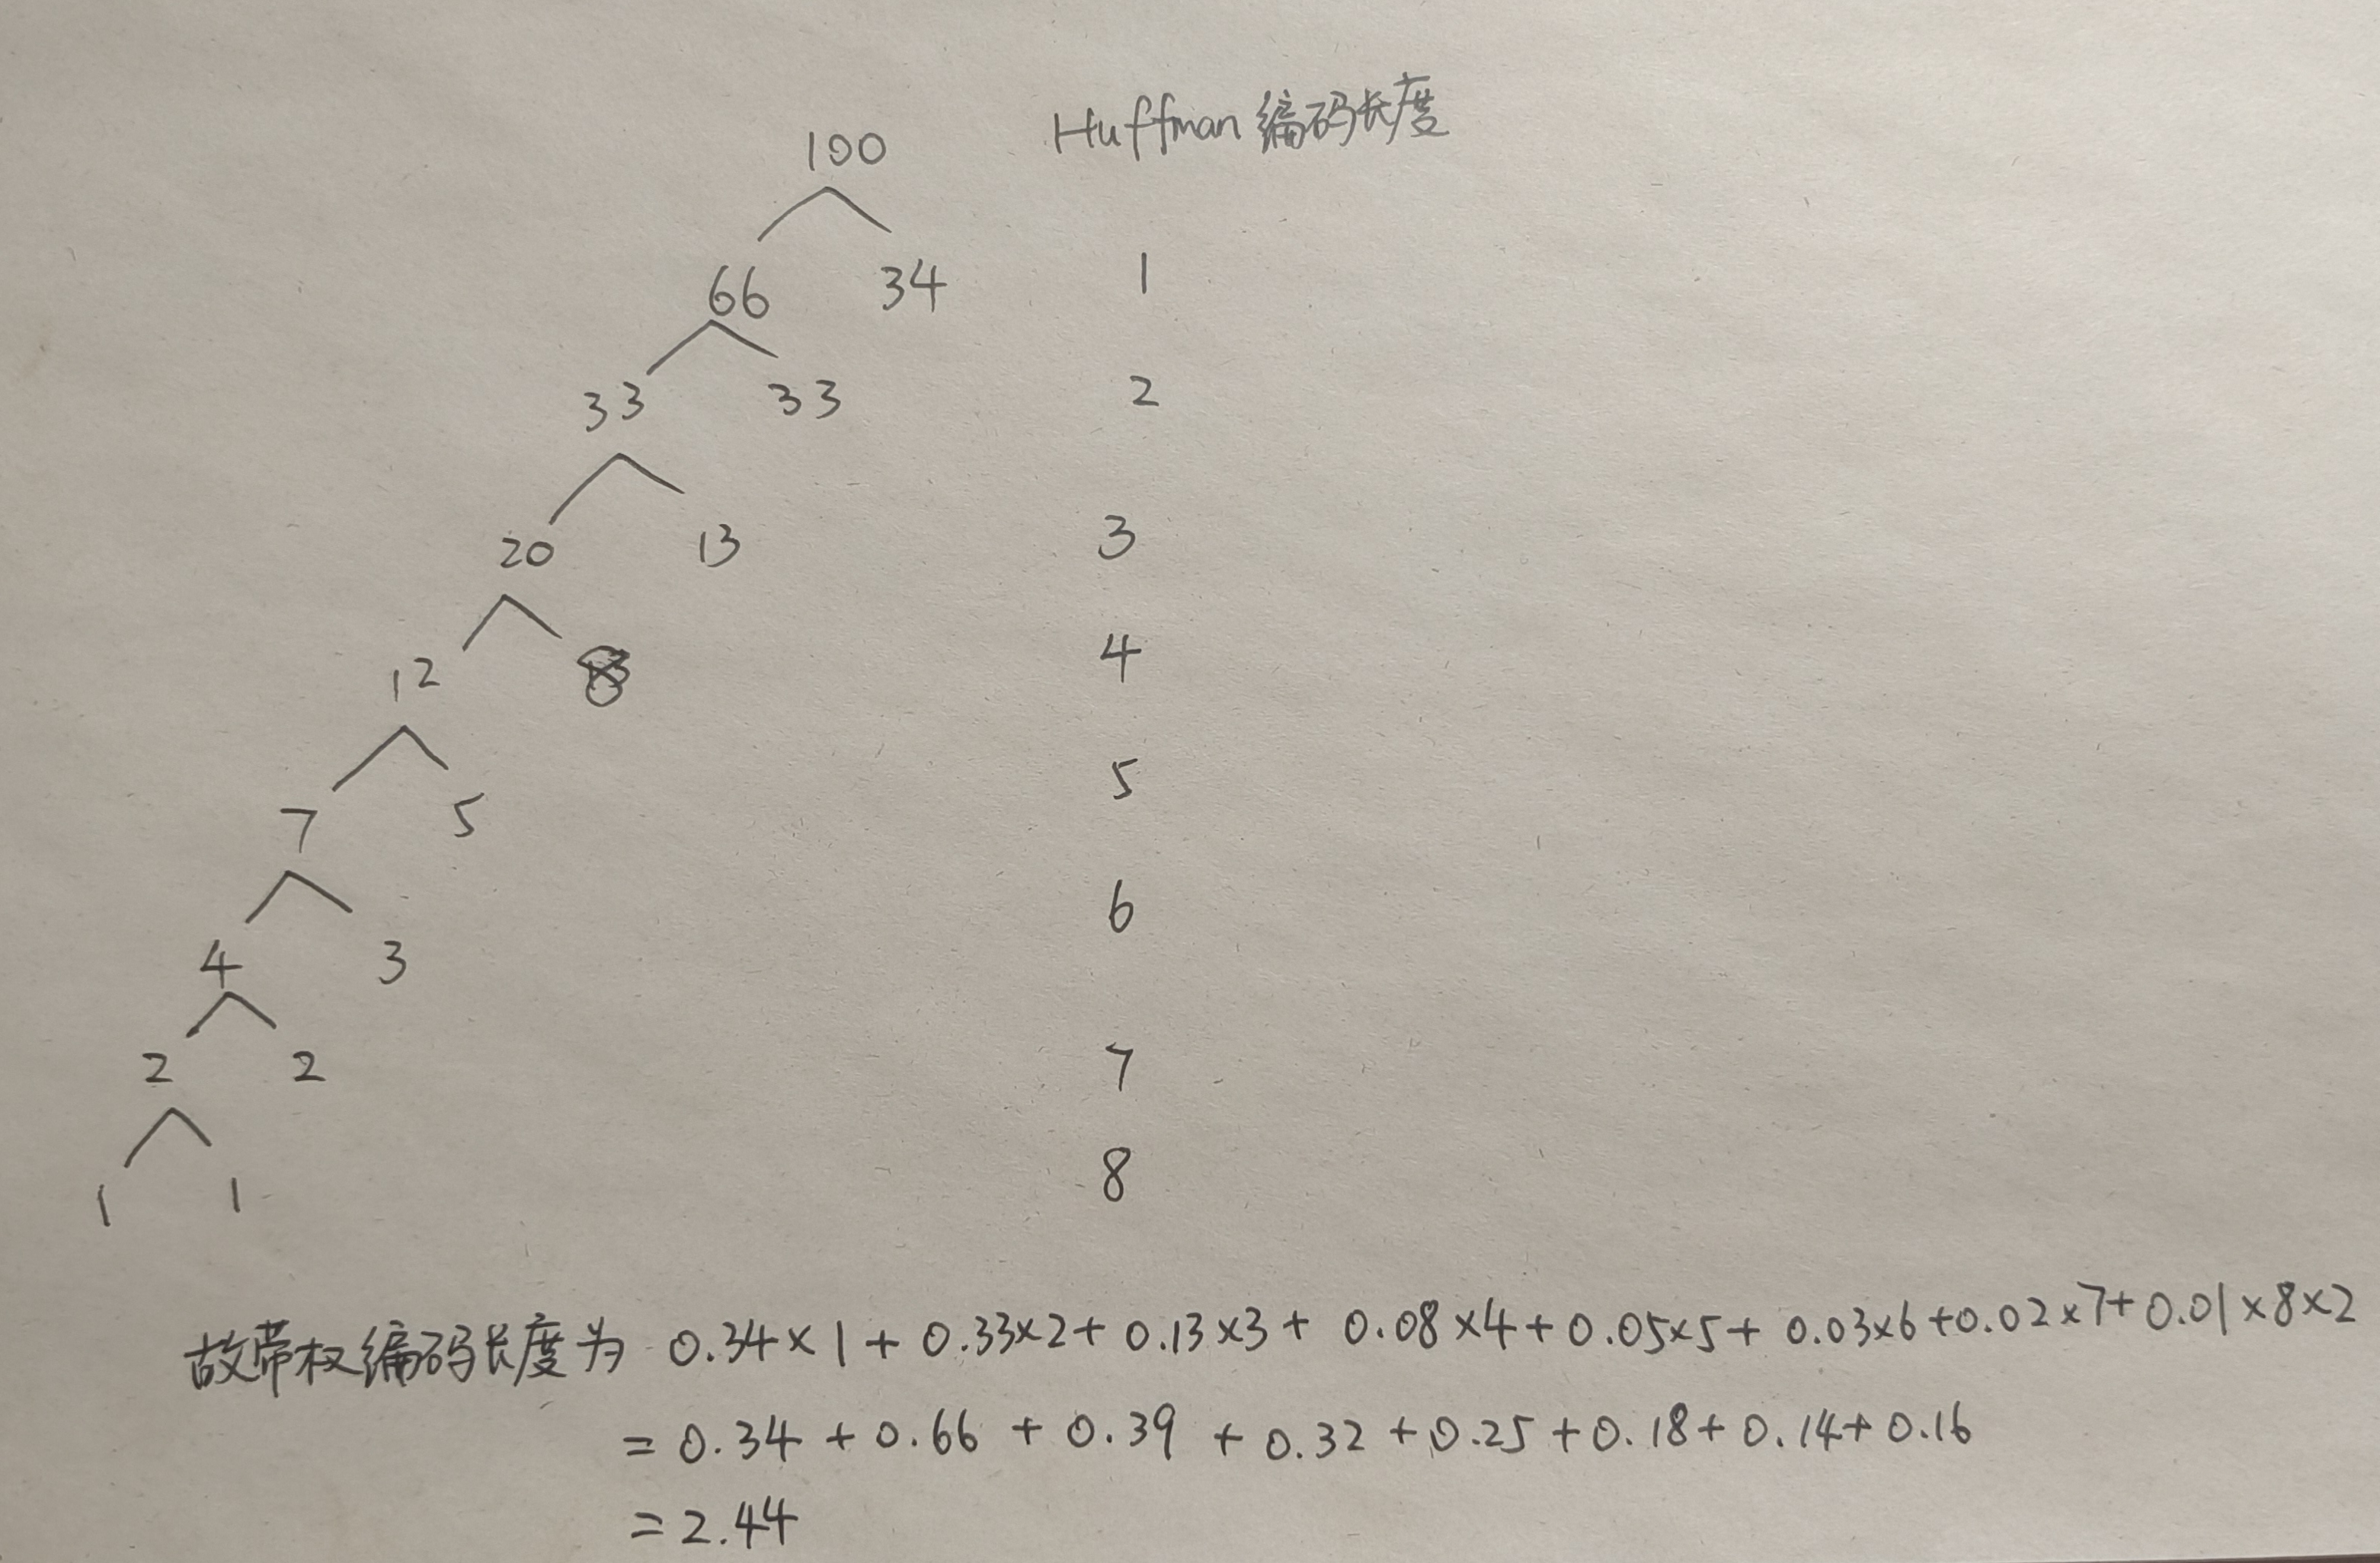 Huffman 编码长度
100
66 34 1
33 33 2
20 13 3
12 8 4
7 5 5
4 3 6
2 2 7
1 1 8
故带权编码长度为 0.34×1+0.33×2+0.13×3+0.08×4+0.05×5+0.03×6+0.02×7+0.01×8×2
=0.34+0.66+0.39+0.32+0.25+0.18+0.14+0.16
=2.44